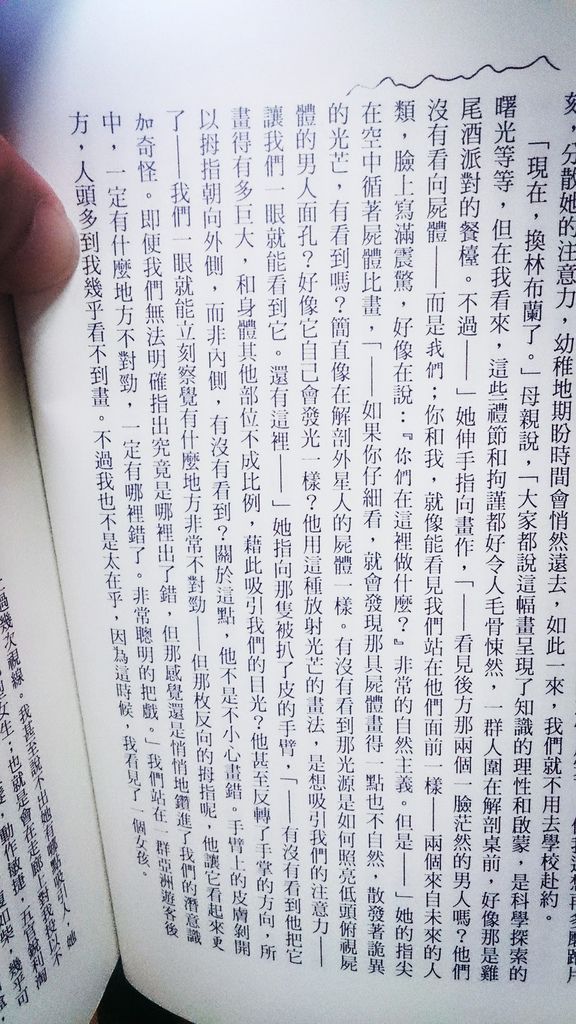 刻，分散她的注意力，幼稚地期盼時間會悄然遠去，如此一來，我們就不用去學校赴約。
「現在，換林布蘭了。」母親說，「大家都說這幅畫呈現了知識的理性和啟蒙，是科學探索的
曙光等等，但在我看來，這些禮節和拘謹都好令人毛骨悚然，一群人圍在解剖桌前，好像那是雞
尾酒派對的餐檯。不過——」她伸手指向畫作，「——看見後方那兩個一臉茫然的男人嗎？他們
沒有看向屍體——而是我們；你和我，就像能看見我們站在他們面前一樣——兩個來自未來的人
類，臉上寫滿震驚，好像在說：『你們在這裡做什麼？』非常的自然主義。但是——」她的指尖
在空中循著屍體比畫，「——如果你仔細看，就會發現那具屍體畫得一點也不自然，散發著詭異
的光芒，有看到嗎？簡直像在解剖外星人的屍體一樣。有沒有看到那光源是如何照亮低頭俯視屍
體的男人面孔？好像它自己會發光一樣？他用這種放射光芒的畫法，是想吸引我們的注意力——
讓我們一眼就能看到它。還有這裡——」她指向那隻被扒了皮的手臂，「——有沒有看到他把它
畫得有多巨大，和身體其他部位不成比例，藉此吸引我們的目光？他甚至反轉了手掌的方向，所
以拇指朝向外側，而非內側，有沒有看到？關於這點，他不是不小心畫錯。手臂上的皮膚剝開
了——我們一眼就能立刻察覺有什麼地方非常不對勁——但那枚反向的拇指呢，他讓它看起來更
加奇怪。即便我們無法明確指出究竟是哪裡出了錯，但那感覺還是悄悄地鑽進了我們的潛意識
中，一定有什麼地方不對勁，一定有哪裡錯了。非常聰明的把戲。」我們站在一群亞洲遊客後
方，人頭多到我幾乎看不到畫。不過我也不是太在乎，因為這時候，我看見了一個女孩。
幾次視線。我甚至說不出她有哪點吸引人，她
女生；也就是會在走廊上對我投以不
動作敏捷，五官銳利
幾乎可